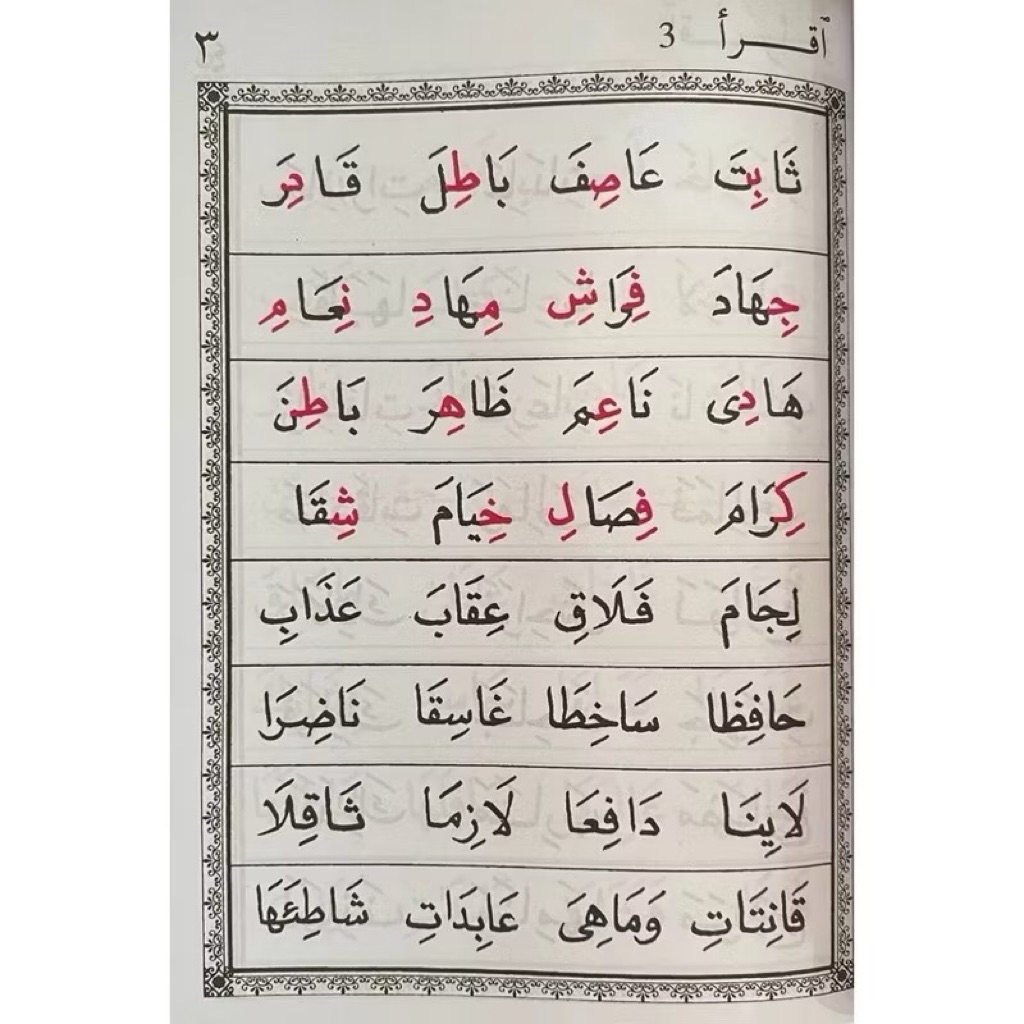 ٱقـــرأ 3 ٣
ثَابِتَ عَاصِفَ بَاطِلَ قَادِرَ
جِهَادَ فِرَاشِ مِهَادِ نِعَامِ
هَادِيَ نَاعِمَ ظَاهِرَ بَاطِنَ
كِرَامَ فِصَالِ خِيَامَ شِقَا
لِجَامَ فَلَاقِ عِقَابَ عَذَابِ
حَافِظَا سَاخِطَا غَاسِقَا نَاضِرَا
لَايِنَا دَافِعَا لَازِمَا ثَاقِلَا
قَانِتَاتِ وَمَاهِىَ عَابِدَاتِ شَاطِئَهَا